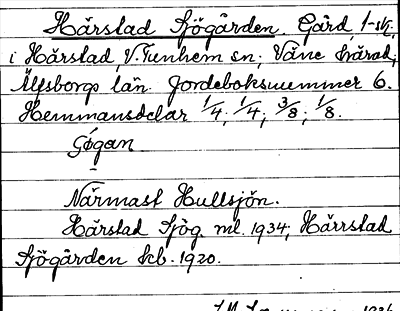 Hårstad Sjögården. Gård, 1-stj.
i Hårstad, V. Tunhem sn, Väne härad,
Älfsborgs län. Jordeboksnummer 6.
Hemmansdelar 1/4; 1/4; 3/8; 1/8.
Gógan.
Närmast Hullsjön.
Hårstad Sjög. ml. 1934; Hårrstad
Sjögården kb. 1920.